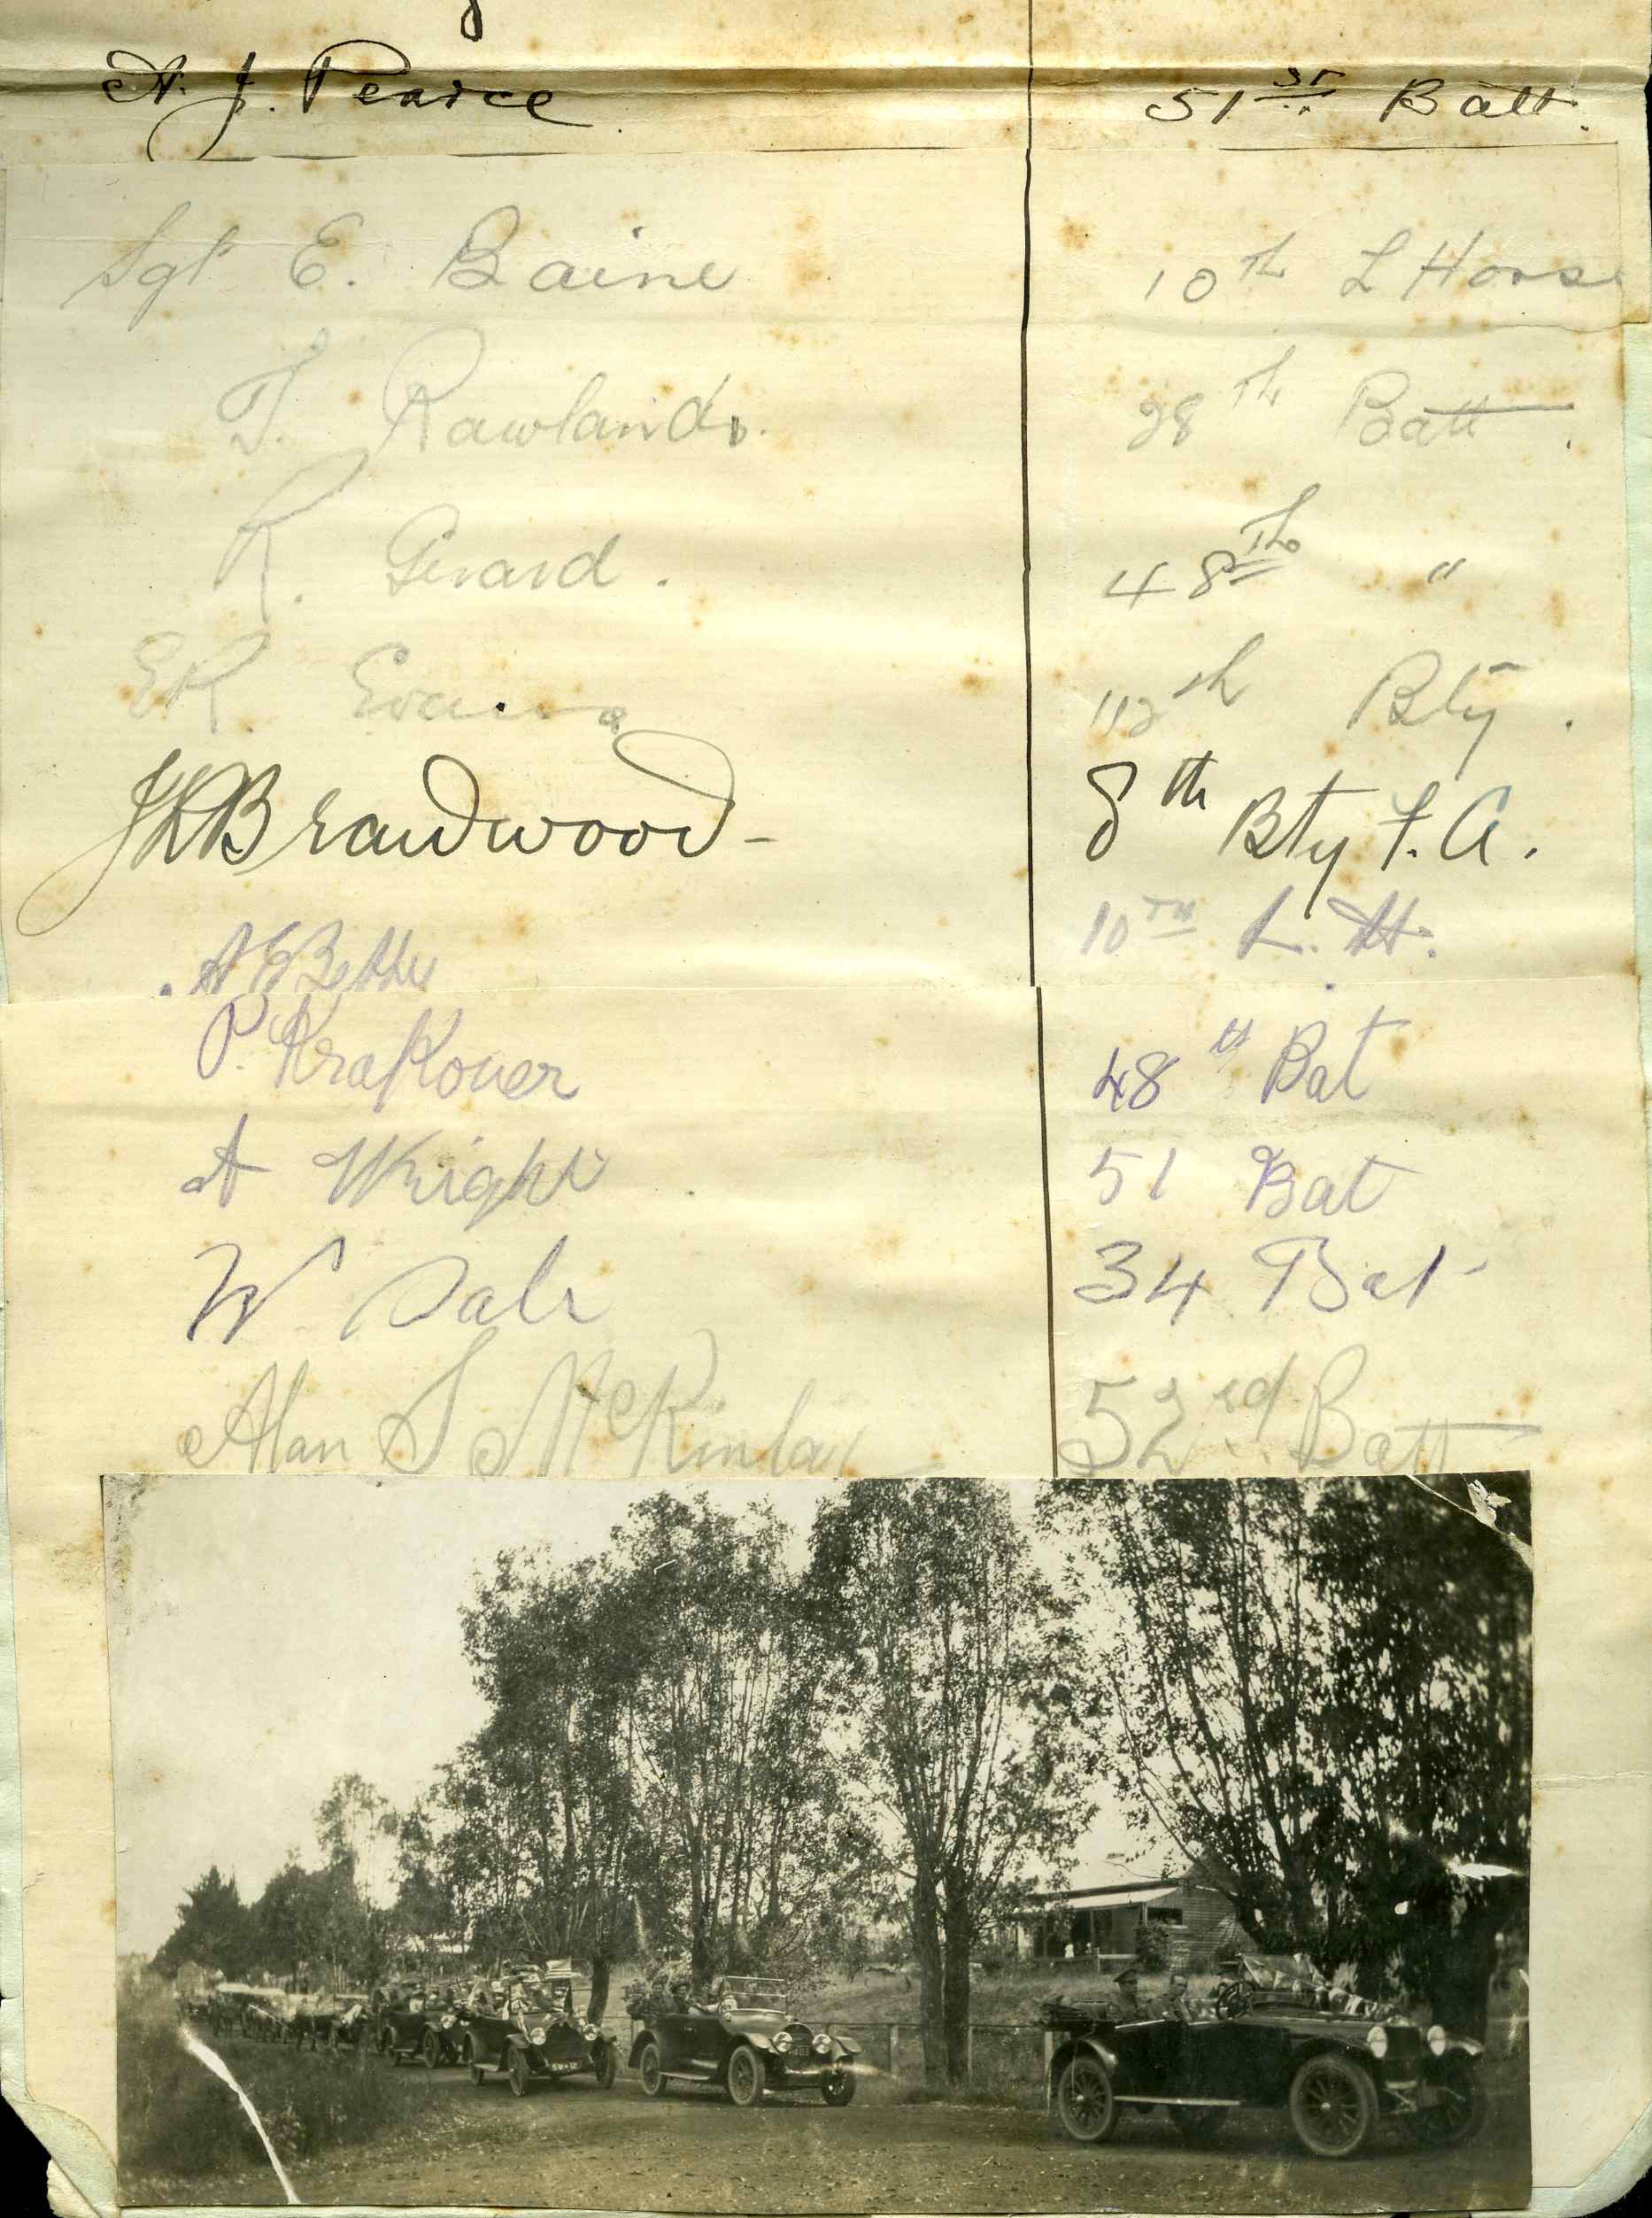 A. J. Pearce 51st Batt.
Sgt E. Baine 10th L Horse
T. Rawlands. 28th Batt.
R. Girard. 48th "
ER Evans 112th Bty.
Braidwood - 8th Bty F.A.
10TH L.H.
P. Krakouer 48th Bat
A Wright 51 Bat
W Dale 34 Bat
Alan S McKinlay 52nd Batt